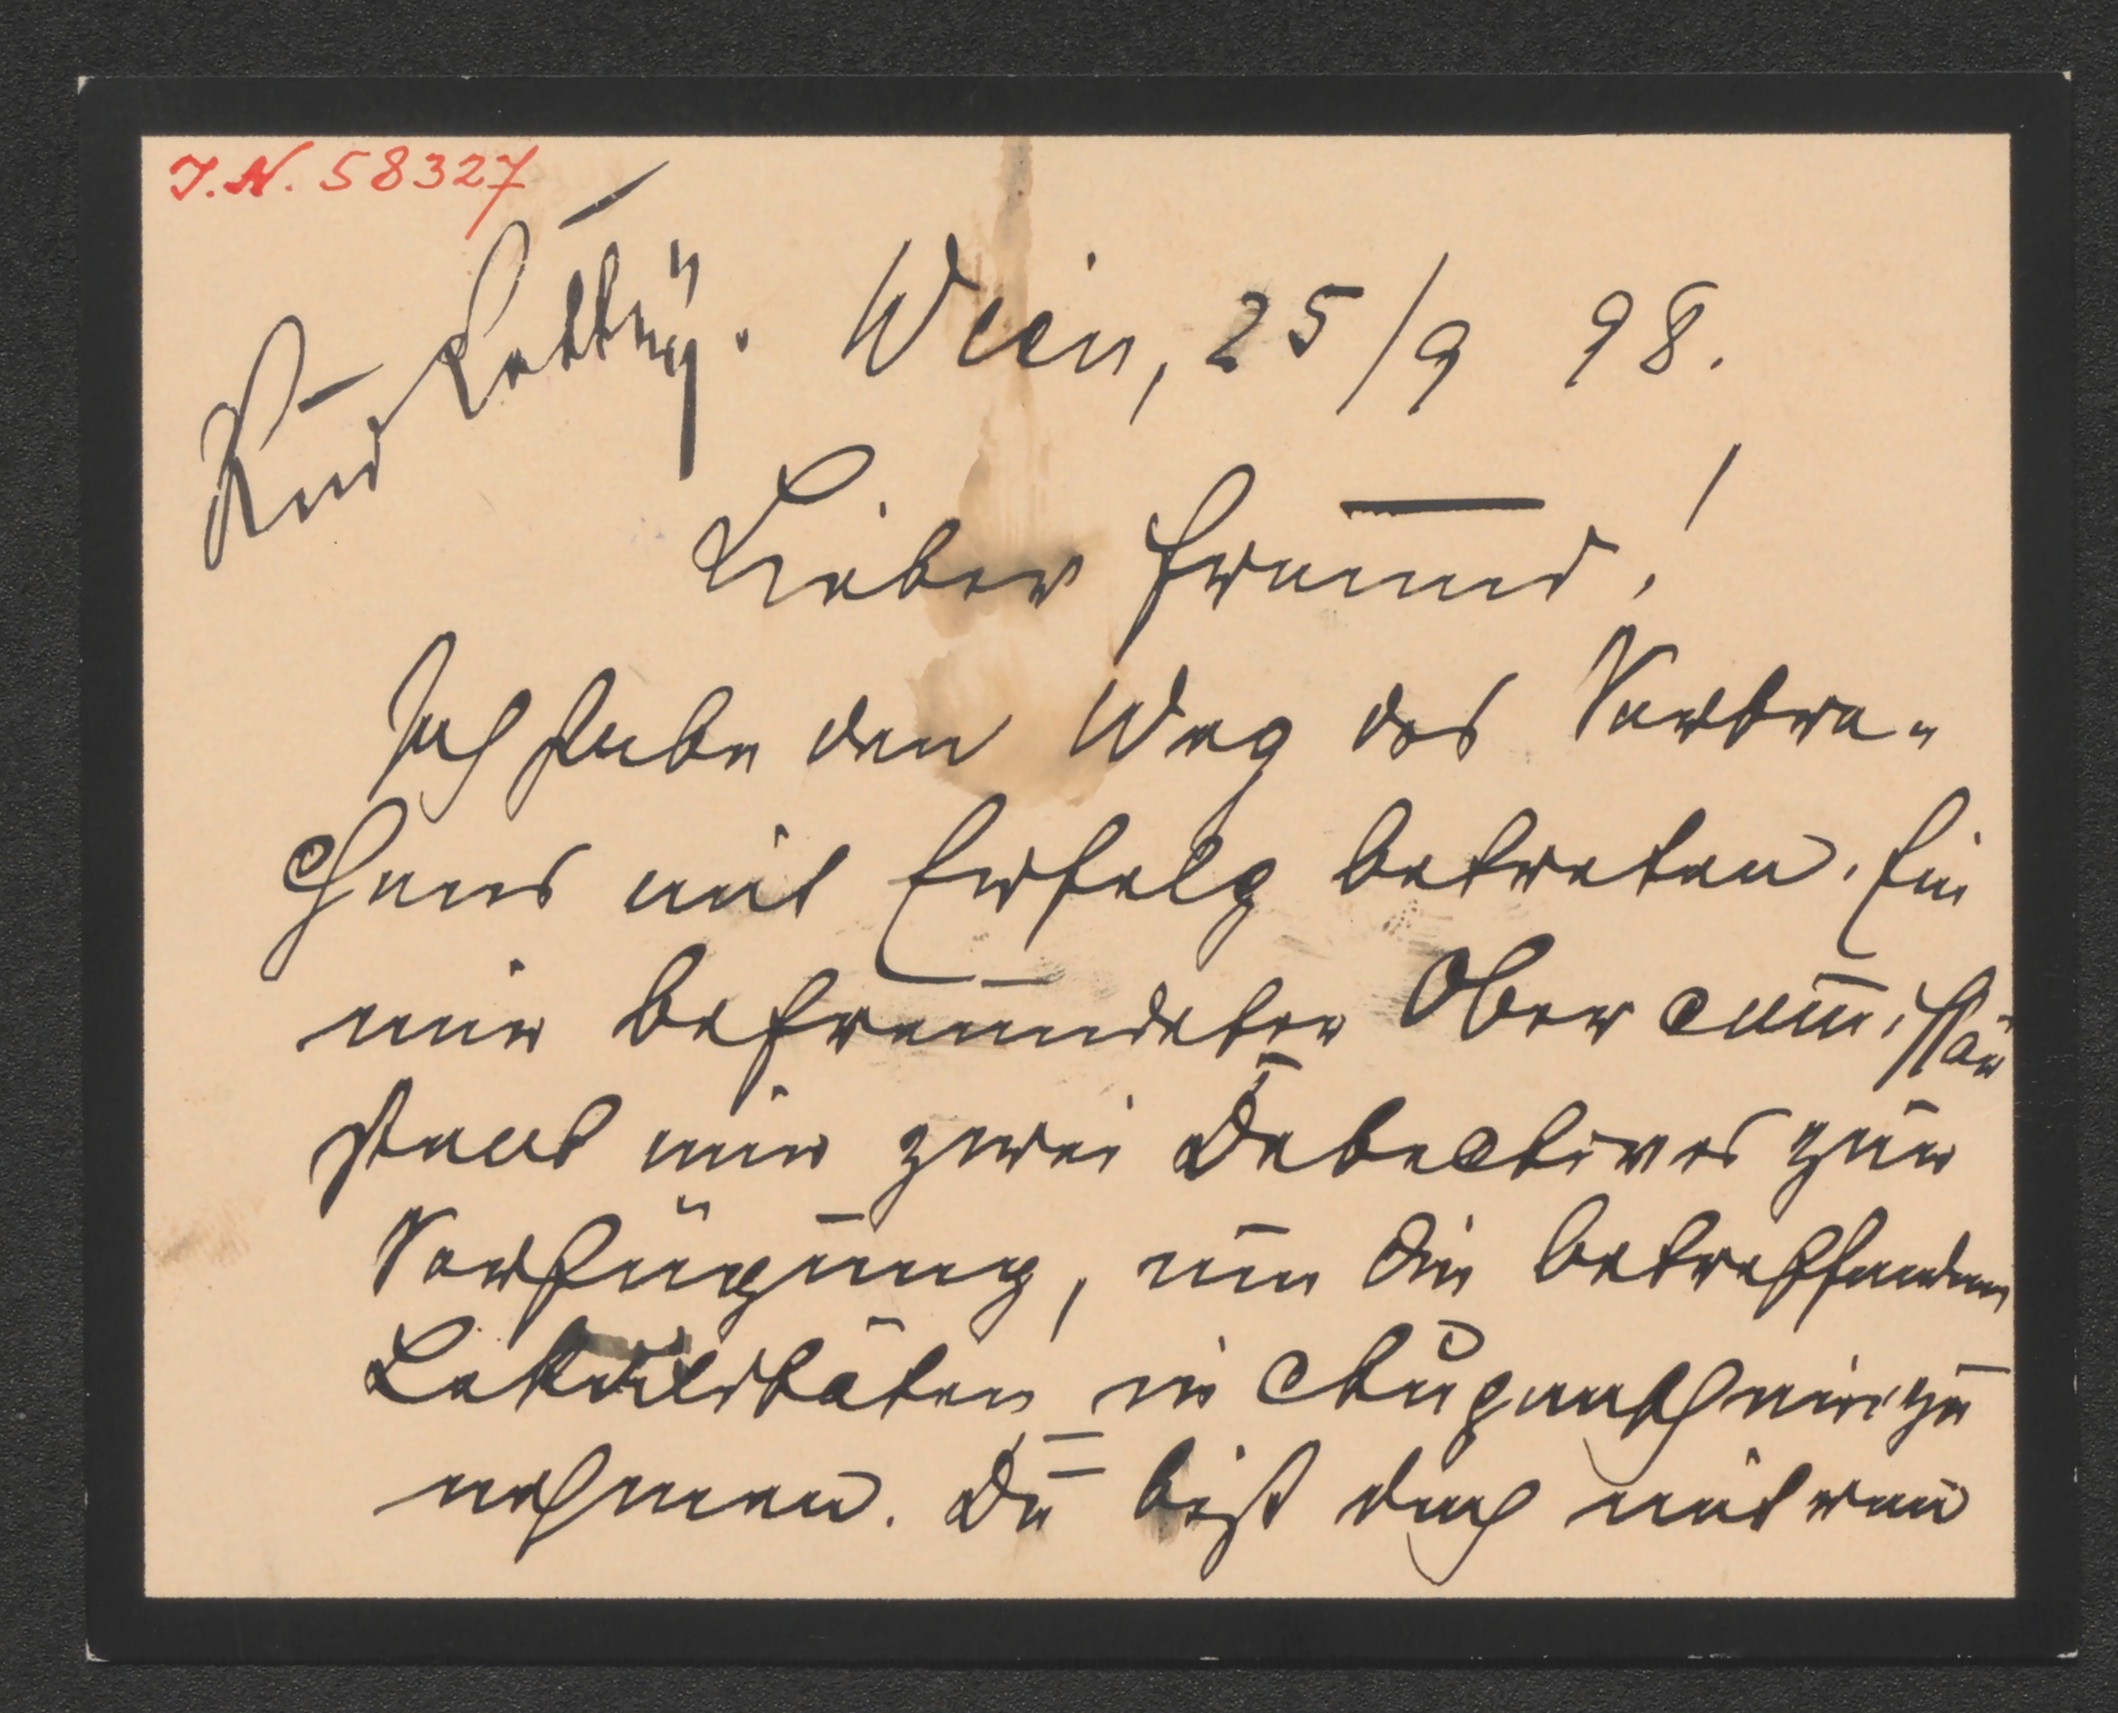 I.N. 58327
Rud Lothar. Wien, 25/9 98.
Lieber Freund!
Ich habe den Weg des Verbre-
chens mit Erfolg betreten. Ein
mir befreundeter Obercommissär
stellt mir zwei Detectives zur
Verfügung, um die betreffenden
Lokalitäten in Augenschein zu
nehmen. Du bist doch mit von